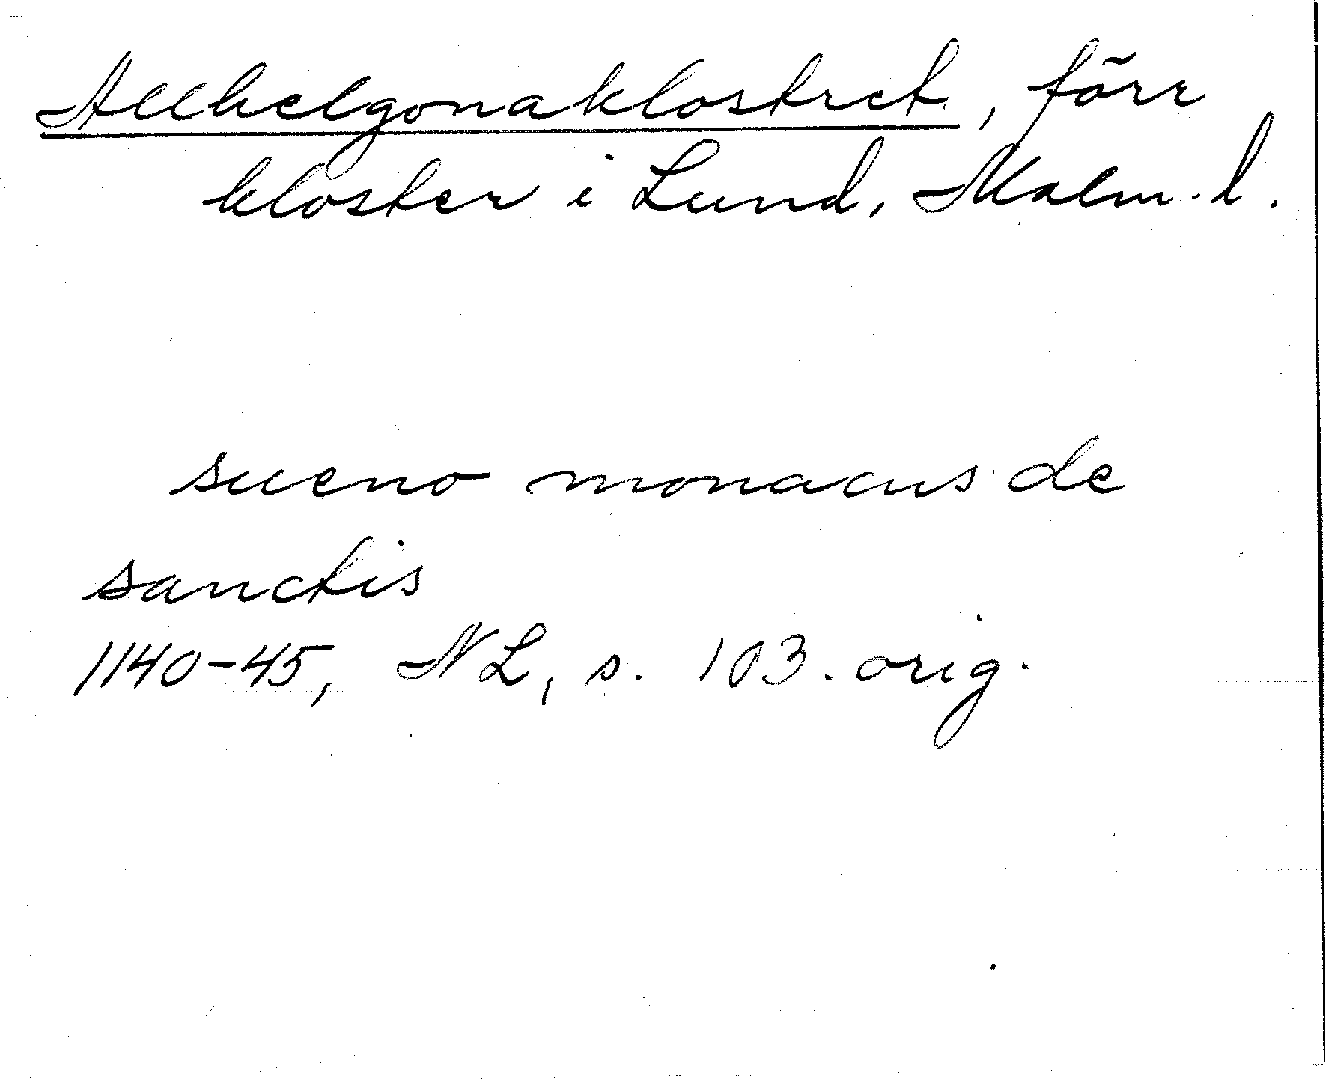 Allhelgonaklostret, förr
kloster i Lund, Malm. l.
sueno monacus de
sanctis
1140-45, NL, s. 103. orig.